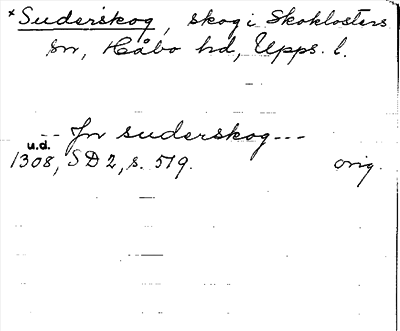 *Suderskog, skog i Skoklosters
sn, Håbo hd, Upps. l.
-- Jn suderskog ---
u.d.
1308, SD 2, s. 519. orig.